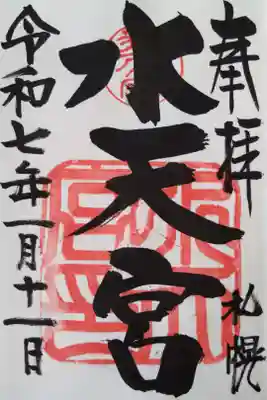 奉拝
札幌
水天宮
令和七年一月十一日